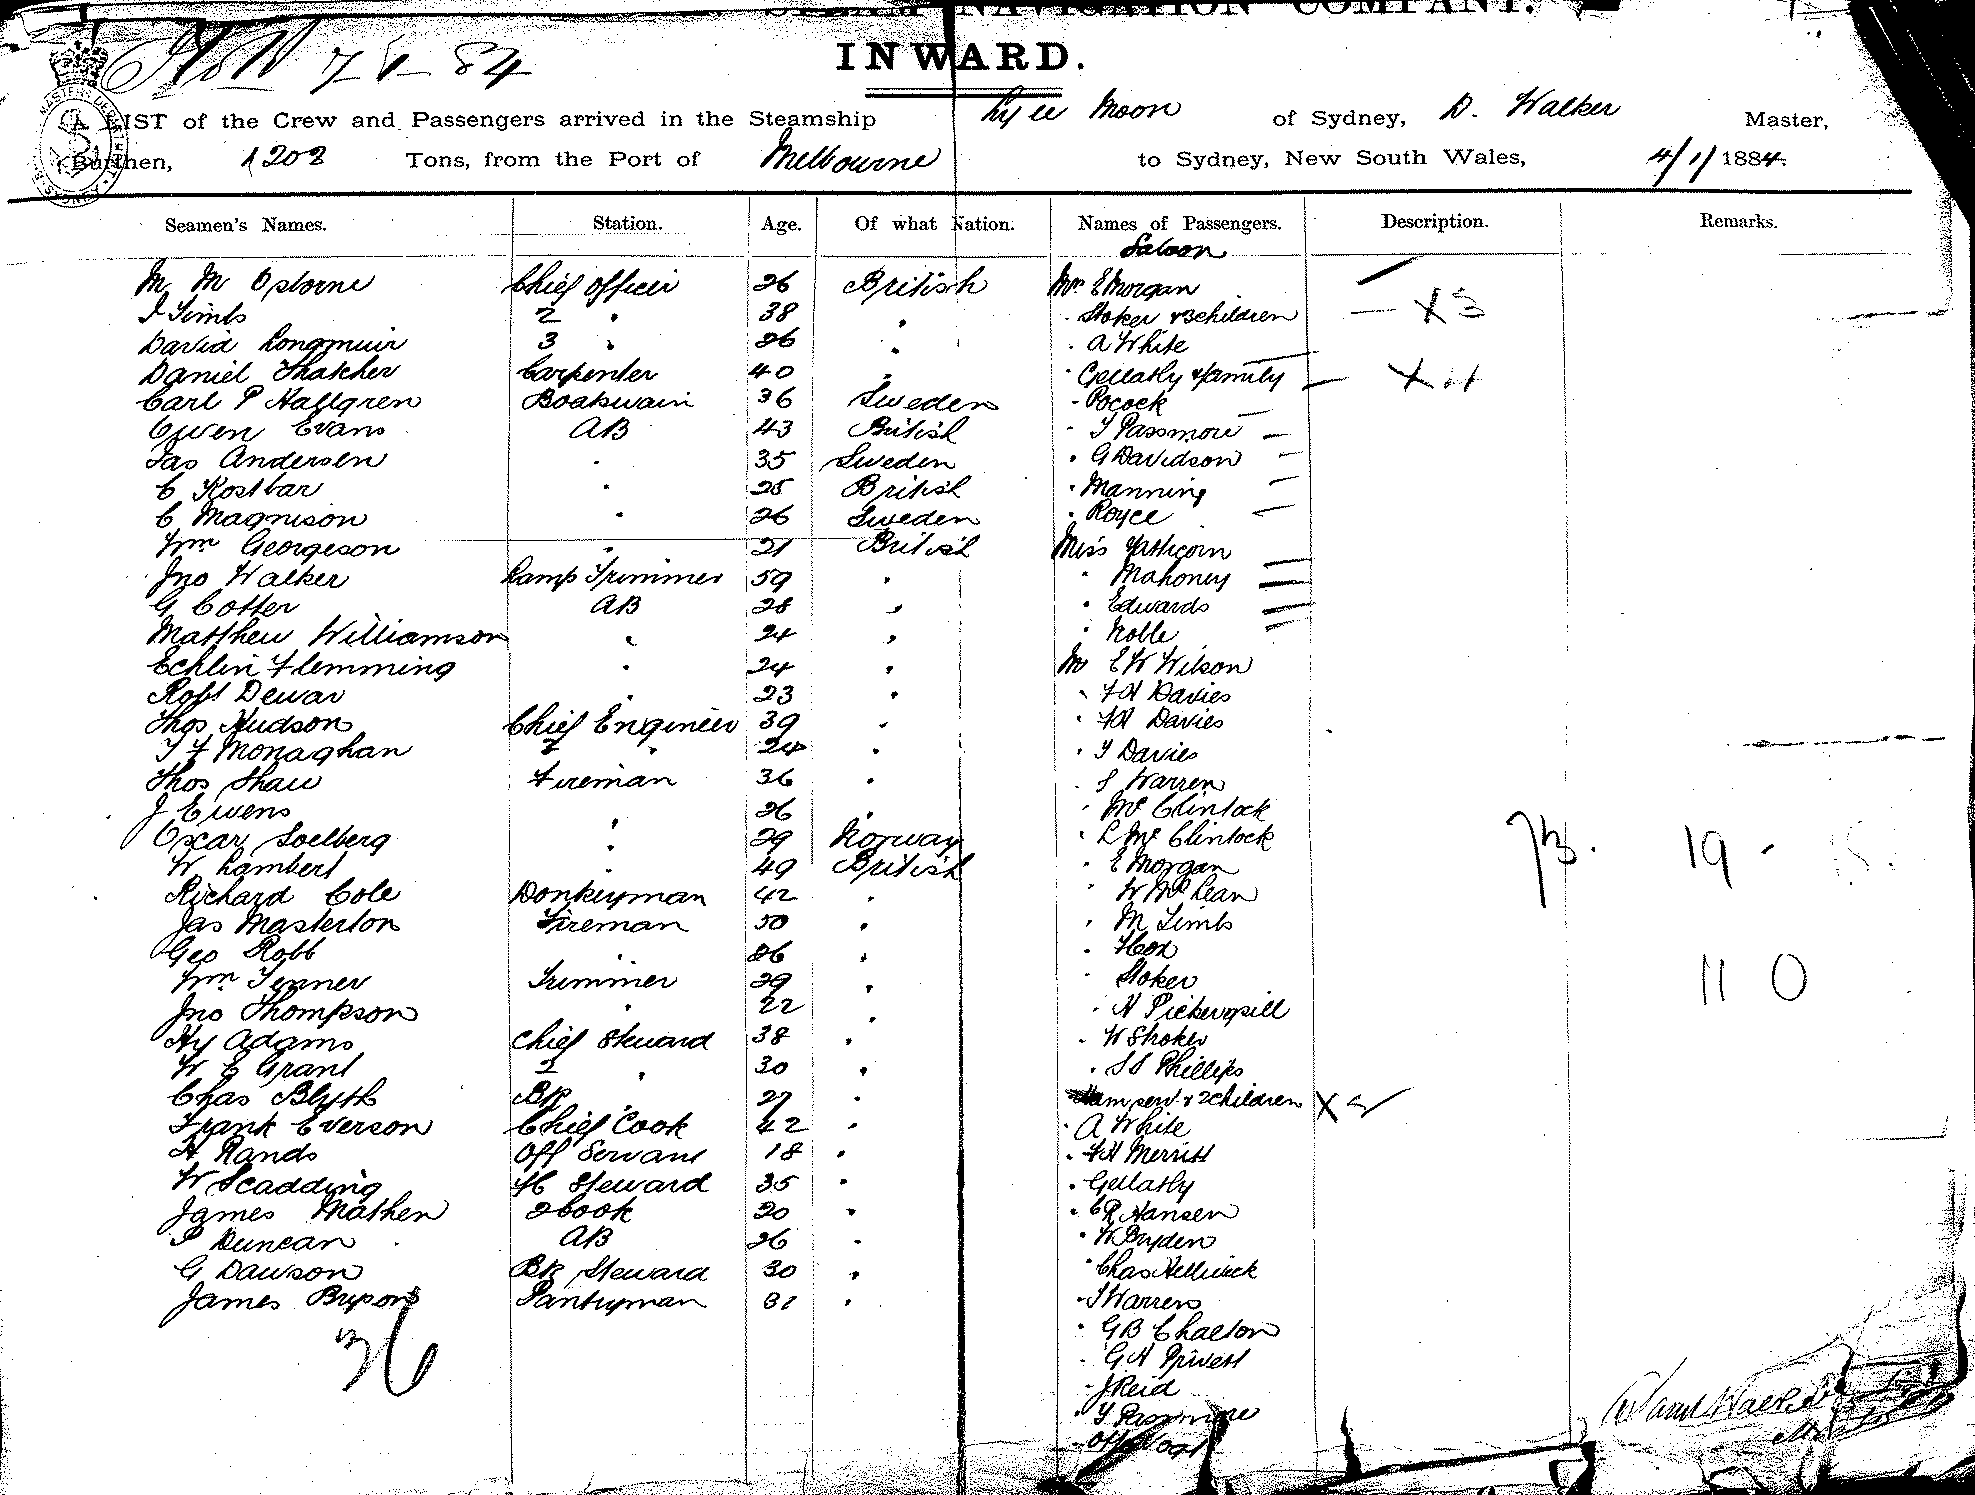 STEAM NAVIGATION COMPANY.
7-1-84
INWARD.
A LIST of the Crew and Passengers arrived in the Steamship Ly ee Moon of Sydney, D. Walker Master,
Burthen, 1202 Tons, from the Port of Melbourne to Sydney, New South Wales, 4/1/1884.
Seamen's Names. Station. Age. Of what Nation. Names of Passengers. Description. Remarks.
Saloon
M. M Osborne Chief Officer 26 British Mrs E Morgan
J Limb 2 " 38 " " Stoker & 3 children — X 3
David Longmuir 3 " 26 " " A White
Daniel Thatcher Carpenter 40 " " Gellatly & family — X
Carl P Hallgren Boatswain 36 Sweden " Pocock
Owen Evans AB 43 British " T Passmore —
Jas Andersen " 35 Sweden " G Davidson —
C Kostbar " 25 British " Manning —
C Magnison " 26 Sweden " Royce —
Wm Georgeson " 21 British Miss
Jno Walker Lamp Trimmer 59 " " Mahoney
G Cotter AB 28 " " Edwards
Matthew Williamson " 24 " " Noble
Echlin Flemming " 24 " Mr E W Wilson
Robt Dewar " 23 " " F A Davies
Thos Hudson Chief Engineer 39 " " F A Davies
T F Monaghan 2 " 24 " " T Davies
Thos Shaw Fireman 36 " " S Warren
J Ewens " 26 " " Mc Clintock
Oscar Soelberg " 29 Norway " L Mc Clintock
W Lambert " 49 British " E Morgan 73. 19 -
Richard Cole Donkeyman 42 " " W McLean
Jas Masterton Fireman 50 " " M Limb
Geo Robb " 26 " "
Wm Tenner Trimmer 29 " " Stoker 11 0
Jno Thompson " 22 " " H Pickersgill
Hy Adams Chief Steward 38 " " W Stroker
W E Grant 2 " 30 " " S S Phillips
Chas Blyth BR " 27 " & 2 children X 2
Frank Everson Chief Cook 42 " " A White
H Rands Off Servant 18 " " F H Merritt
W Scadding Steward 35 " " Gellatly
James Mathen 2 Cook 20 " " C R Hansen
P Duncan AB 26 " " W Bryden
G Dawson BR Steward 30 " " Chas Hellwick
James Brysons Pantryman 31 " " J Warren
36
" G B Charlton
" G H Privett
" J Reid
" T Passmore